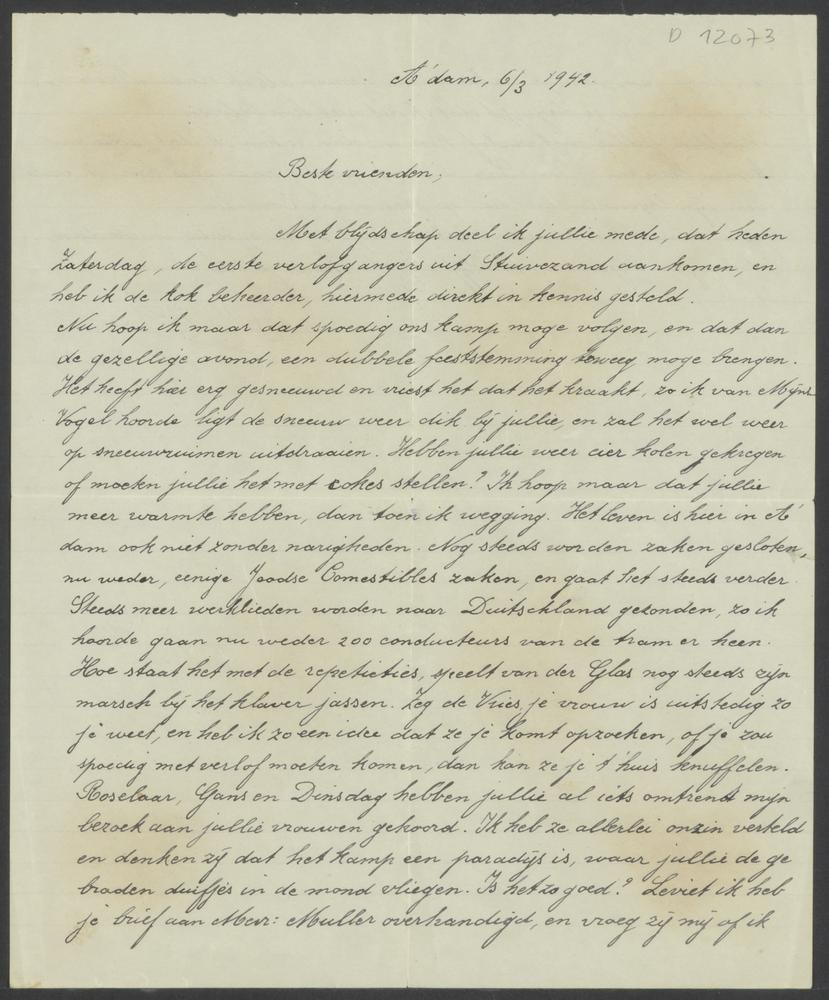 D 12073
A'dam, 6/3 1942.
Beste vrienden,
Met blijdschap deel ik jullie mede, dat heden
Zaterdag, de eerste verlofgangers uit Stuivezand aankomen, en
heb ik de kok beheerder, hiermede direkt in kennis gesteld.
Nu hoop ik maar dat spoedig ons kamp moge volgen, en dat dan
de gezellige avond, een dubbele feeststemming teweeg moge brengen.
Het heeft hier erg gesneeuwd en vriest het dat het kraakt, zo ik van Mijnr
Vogel hoorde ligt de sneeuw weer dik bij jullie, en zal het wel weer
op sneeuwruimen uitdraaien. Hebben jullie weer eier kolen gekregen
of moeten jullie het met cokes stellen? Ik hoop maar dat jullie
meer warmte hebben, dan toen ik wegging. Het leven is hier in A'
dam ook niet zonder narigheden. Nog steeds worden zaken gesloten,
nu weder, eenige Joodse Comestibles zaken, en gaat het steeds verder.
Steeds meer werklieden worden naar Duitschland gezonden, zo ik
hoorde gaan nu weder 200 conducteurs van de tram er heen.
Hoe staat het met de repetieties, speelt van der Glas nog steeds zijn
marsch bij het klaver jassen. Zeg de Vries, je vrouw is uitstedig zo
je weet, en heb ik zo een idee dat ze je komt opzoeken, of je zou
spoedig met verlof moeten komen, dan kan ze je t'huis knuffelen.
Roselaar, Gans en Dinsdag hebben jullie al iets omtrent mijn
bezoek aan jullie vrouwen gehoord. Ik heb ze allerlei onzin verteld
en denken zij dat het kamp een paradijs is, waar jullie de ge
braden duifjes in de mond vliegen. Is het zo goed? Leviet ik heb
je brief aan Mevr: Muller overhandigd, en vroeg zij mij of ik